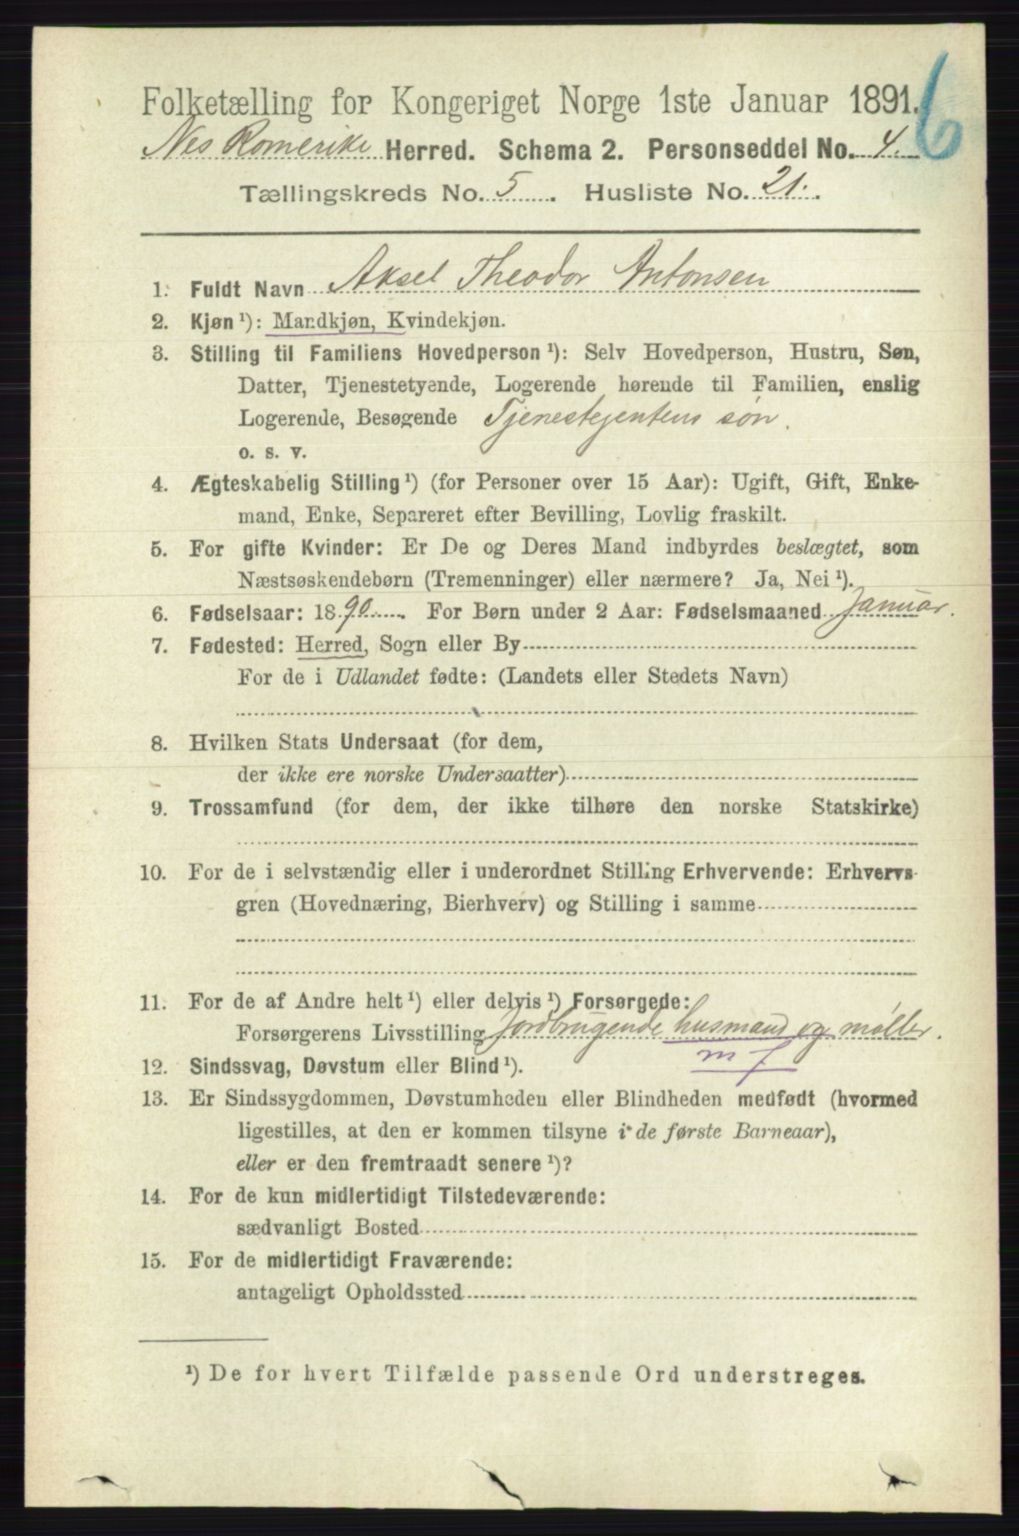 Folketælling for Kongeriget Norge 1ste Januar 1891. 6
Nes Romerike Herred. Schema 2. Personseddel No. 4.
Tællingskreds No. 5. Husliste No. 21.
1. Fuldt Navn Aksel Theodor Antonsen
2. Kjøn ¹): Mandkjøn, Kvindekjøn.
3. Stilling til Familiens Hovedperson ¹): Selv Hovedperson, Hustru, Søn,
Datter, Tjenestetyende, Logerende hørende til Familien, enslig
Logerende, Besøgende Tjenestejentens søn.
o. s. v.
4. Ægteskabelig Stilling ¹) (for Personer over 15 Aar): Ugift, Gift, Enke-
mand, Enke, Separeret efter Bevilling, Lovlig fraskilt.
5. For gifte Kvinder: Er De og Deres Mand indbyrdes beslægtet, som
Næstsøskendebørn (Tremenninger) eller nærmere? Ja, Nei ¹).
6. Fødselsaar: 1890. For Børn under 2 Aar: Fødselsmaaned Januar.
7. Fødested: Herred, Sogn eller By
For de i Udlandet fødte: (Landets eller Stedets Navn)
8. Hvilken Stats Undersaat (for dem,
der ikke ere norske Undersaatter)
9. Trossamfund (for dem, der ikke tilhøre den norske Statskirke)
10. For de i selvstændig eller i underordnet Stilling Erhvervende: Erhvervs-
gren (Hovednæring, Bierhverv) og Stilling i samme
11. For de af Andre helt ¹) eller delvis ¹) Forsørgede:
Forsørgerens Livsstilling Jordbrugende husmand og møller.
m f
12. Sindssvag, Døvstum eller Blind ¹).
13. Er Sindssygdommen, Døvstumheden eller Blindheden medfødt (hvormed
ligestilles, at den er kommen tilsyne i de første Barneaar),
eller er den fremtraadt senere ¹)?
14. For de kun midlertidigt Tilstedeværende:
sædvanligt Bosted
15. For de midlertidigt Fraværende:
antageligt Opholdssted
¹) De for hvert Tilfælde passende Ord understreges.